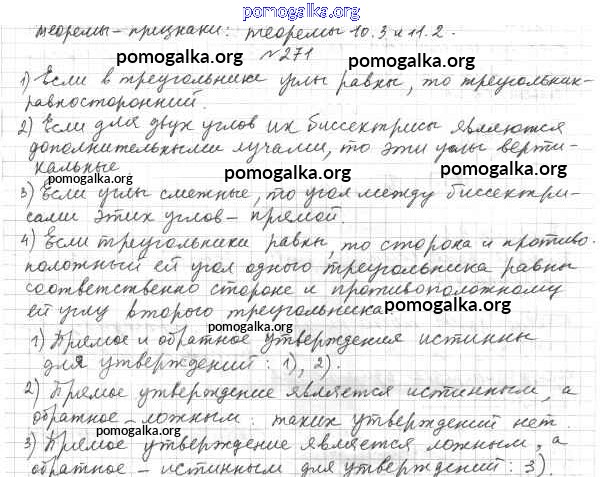 pomogalka.org
теоремы-признаки: теоремы 10.3 и 11.2.
№ 271
pomogalka.org pomogalka.org
1) Если в треугольнике углы равны, то треугольник-
равносторонний.
2) Если для двух углов их биссектрисы являются
дополнительными лучами, то эти углы верти-
кальные
pomogalka.org pomogalka.org pomogalka.org
3) Если углы смежные, то угол между биссектри-
сами этих углов - прямой.
4) Если треугольники равны, то сторона и противо-
положный ей угол одного треугольника равны
соответственно стороне и противоположному
ей углу второго треугольника
pomogalka.org
pomogalka.org
1) Прямое и обратное утверждения истинны
для утверждений: 1), 2).
pomogalka.org
2) Прямое утверждение является истинным, а
обратное - ложным: таких утверждений нет.
pomogalka.org pomogalka.org
3) Прямое утверждение является ложным, а
обратное - истинным для утверждений: 3).